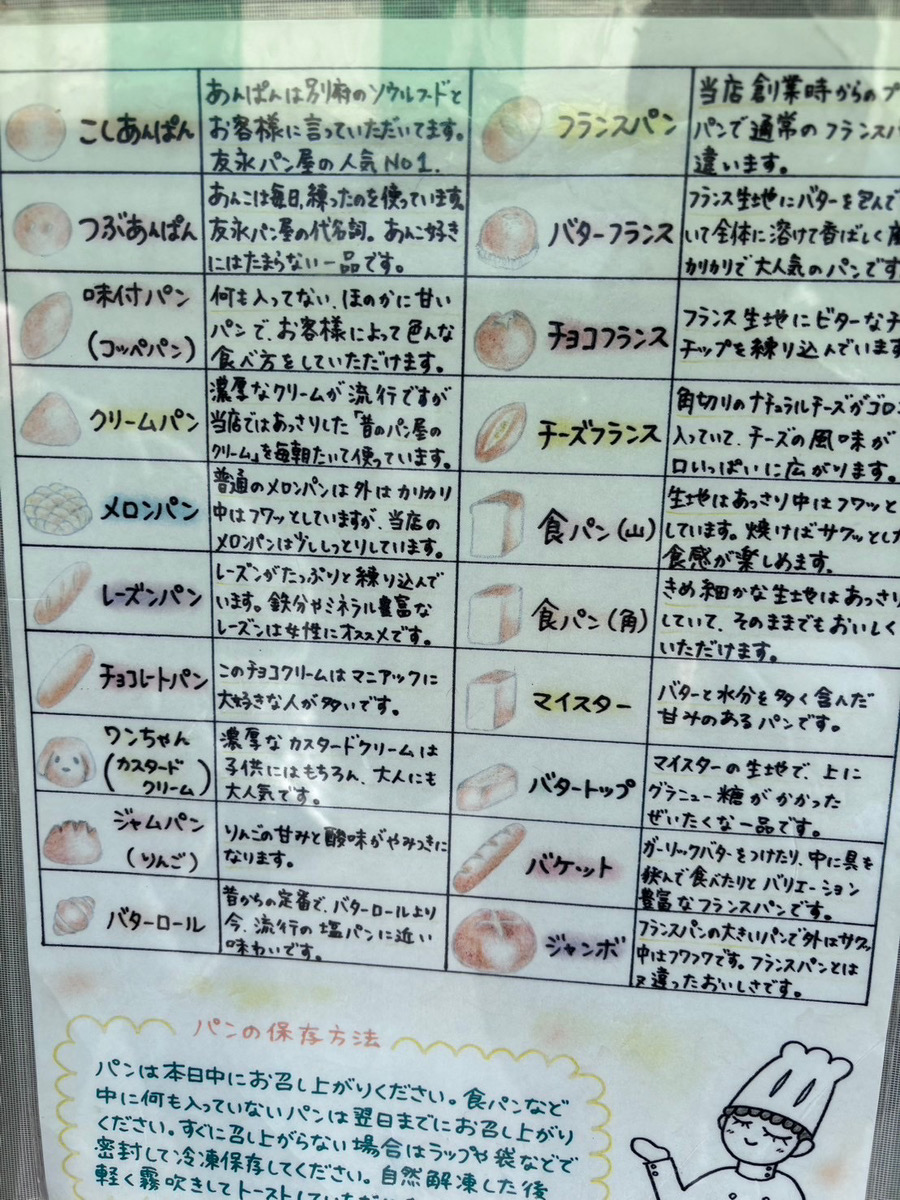 こしあんぱん
あんぱんは別府のソウルフードと
お客様に言っていただいてます。
友永パン屋の人気NO1.
つぶあんぱん
あんこは毎日、練ったのを使っています。
友永パン屋の代名詞。あんこ好き
にはたまらない一品です。
味付パン
(コッペパン)
何も入ってない、ほのかに甘い
パンで、お客様によって色んな
食べ方をしていただけます。
クリームパン
濃厚なクリームが流行ですが
当店ではあっさりした「昔のパン屋の
クリーム」を毎朝たいて使っています。
メロンパン
普通のメロンパンは外はカリカリ
中はフワッとしていますが、当店の
メロンパンは少ししっとりしています。
レーズンパン
レーズンがたっぷりと練り込んで
います。鉄分やミネラル豊富な
レーズンは女性にオススメです。
チョコレートパン
このチョコクリームはマニアックに
大好きな人が多いです。
ワンちゃん
(カスタード
クリーム)
濃厚なカスタードクリームは
子供にはもちろん、大人にも
大人気です。
ジャムパン
(りんご)
りんごの甘みと酸味がやみつきに
なります。
バターロール
昔からの定番で、バターロールより
今、流行の塩パンに近い
味わいです。
フランスパン
当店創業時からのプ
パンで通常のフランスパ
違います。
バターフランス
フランス生地にバターを包んで
いて全体に溶けて香ばしく底
カリカリで大人気のパンです
チョコフランス
フランス生地にビターなチ
チップを練り込んでいます
チーズフランス
角切りのナチュラルチーズがゴロ
入っていて、チーズの風味が
口いっぱいに広がります。
食パン(山)
生地はあっさり中はフワッと
しています。焼けばサクッとした
食感が楽しめます。
食パン(角)
きめ細かな生地はあっさり
していて、そのままでもおいしく
いただけます。
マイスター
バターと水分を多く含んだ
甘みのあるパンです。
バタートップ
マイスターの生地で、上に
グラニュー糖がかかった
ぜいたくな一品です。
バケット
ガーリックバターをつけたり、中に具を
挟んで食べたりとバリエーション
豊富なフランスパンです。
ジャンボ
フランスパンの大きいパンで外はサクッ
中はフワフワです。フランスパンとは
又違ったおいしさです。
パンの保存方法
パンは本日中にお召し上がりください。食パンなど
中に何も入っていないパンは翌日までにお召し上がり
ください。すぐに召し上がらない場合はラップや袋などで
密封して冷凍保存してください。自然解凍した後
軽く霧吹きしてトーストしていただ